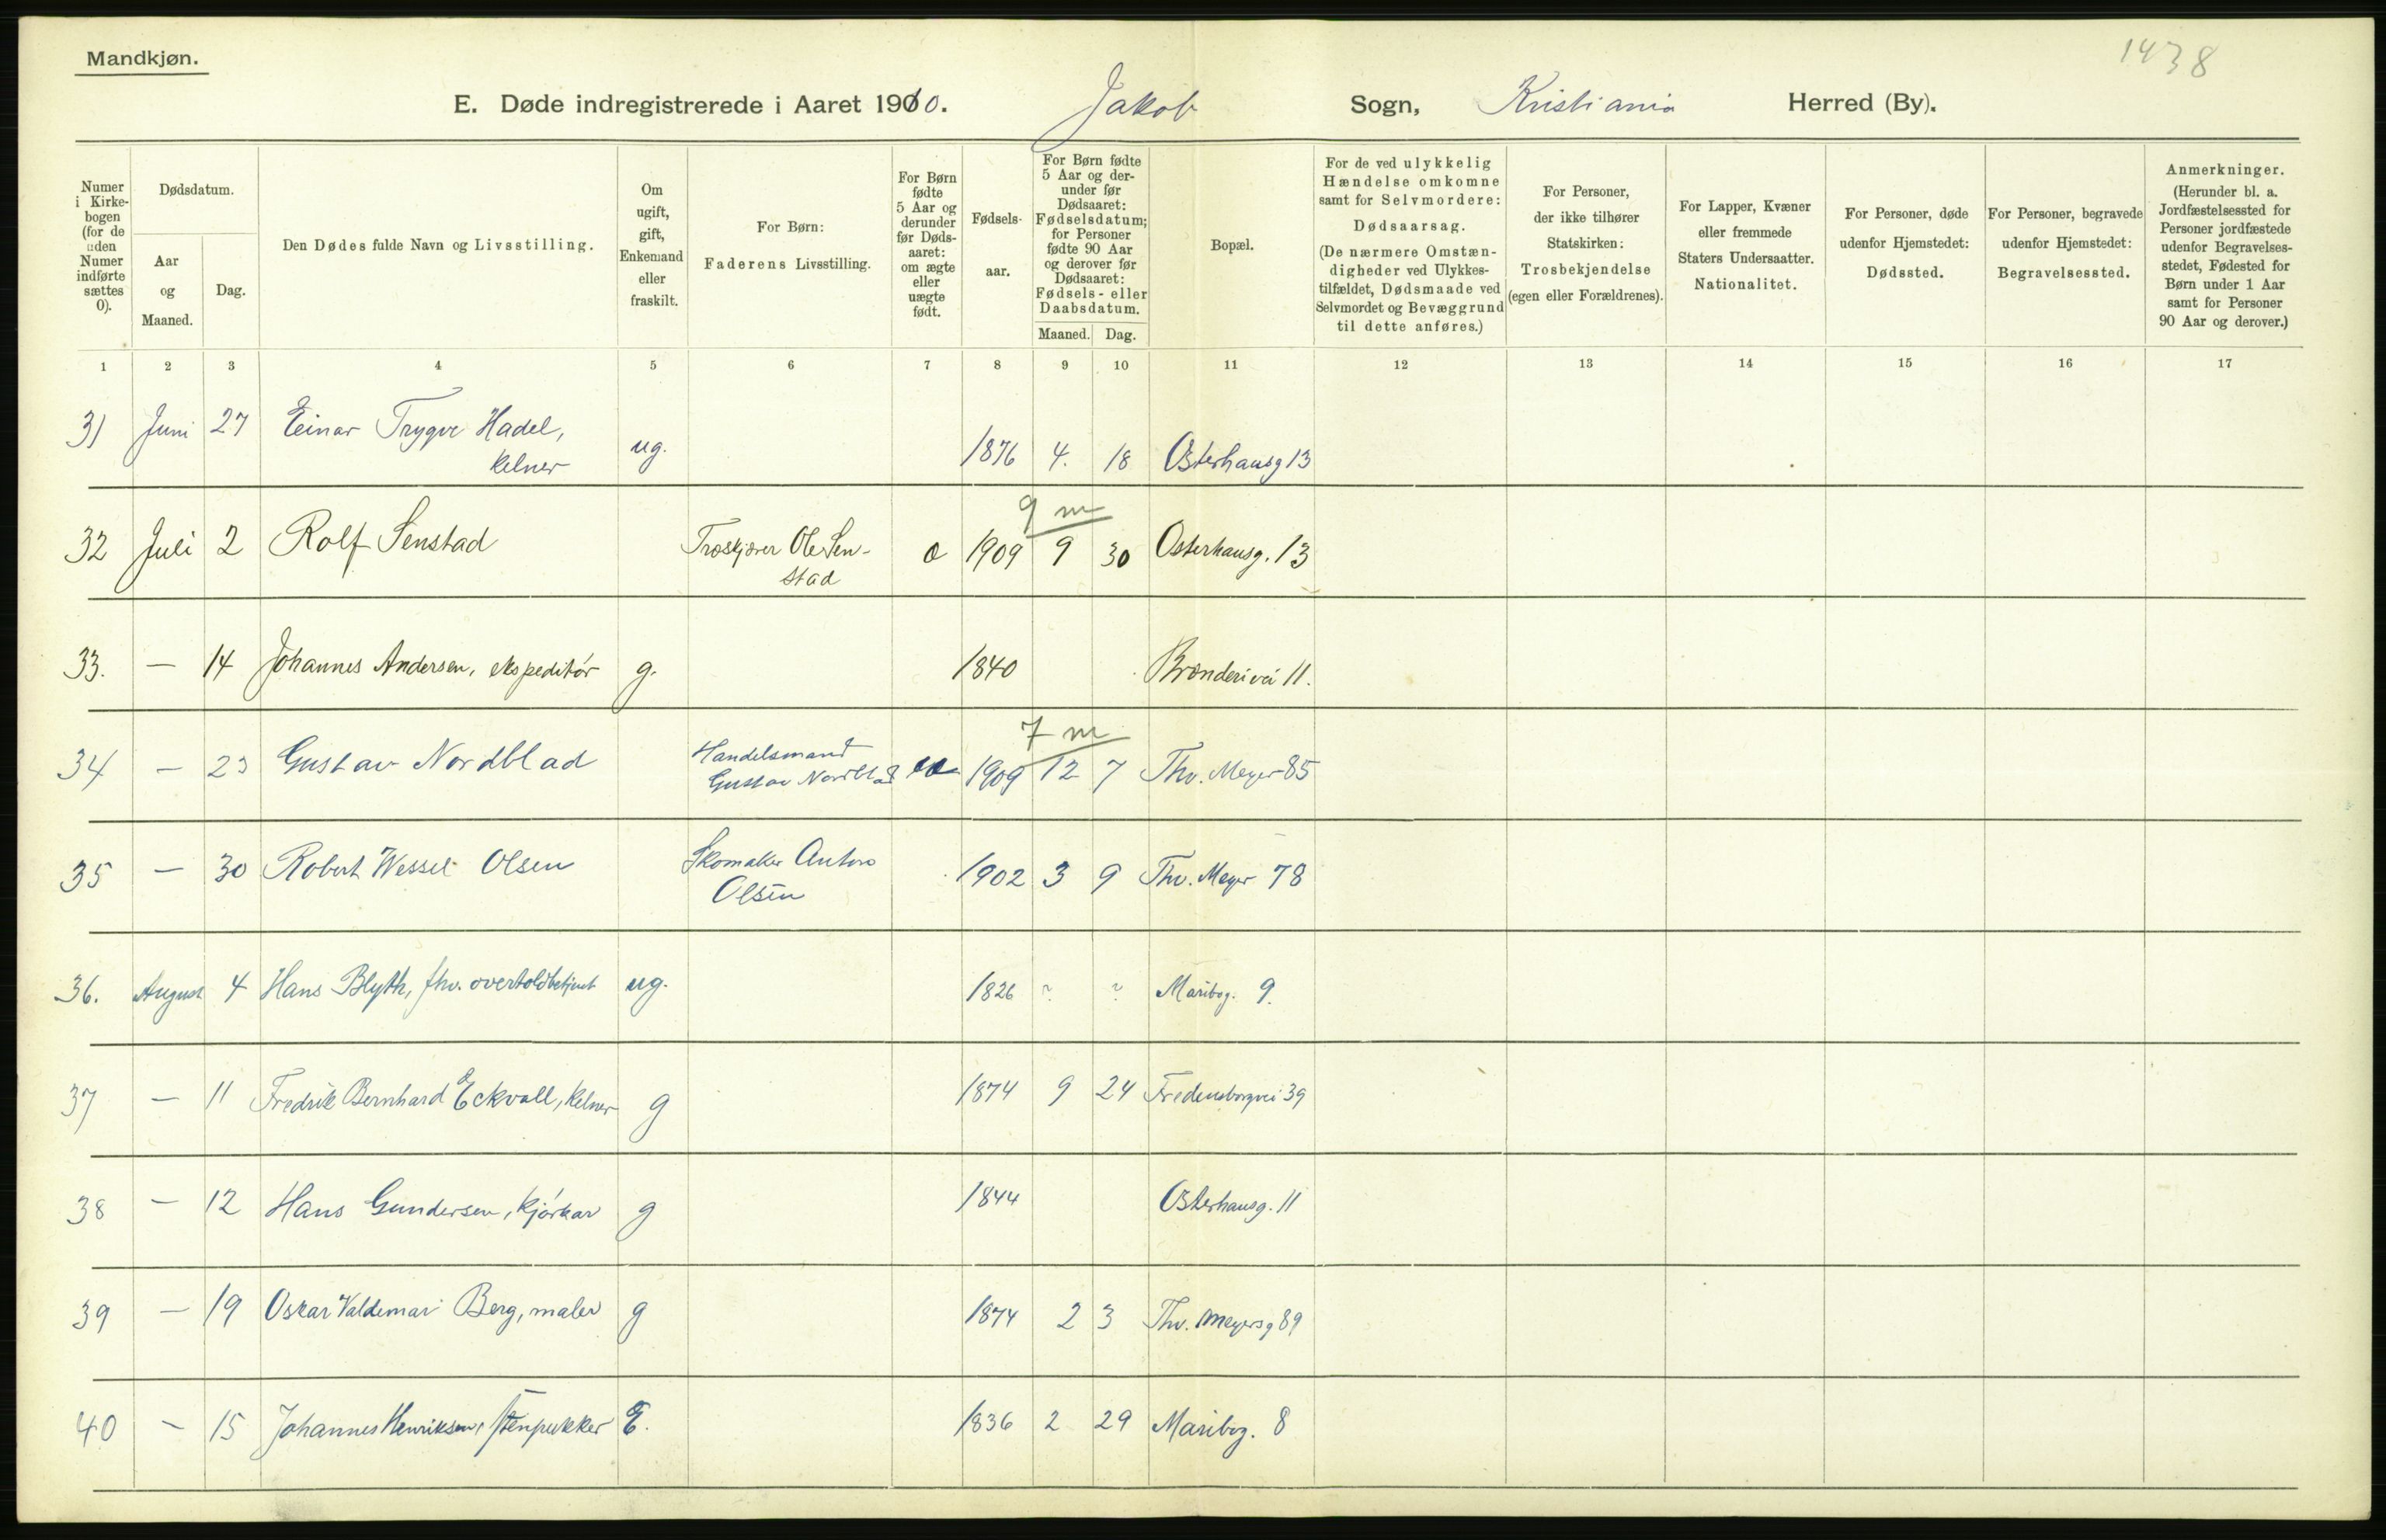 Mandkjøn.
1438
E. Døde indregistrerede i Aaret 1910. Jakob Sogn, Kristiania Herred (By).
Numer i Kirkebogen (for de uden Numer indførte sættes 0).
Dødsdatum.
Aar og Maaned.
Dag.
Den Dødes fulde Navn og Livsstilling.
Om ugift, gift, Enkemand eller fraskilt.
For Børn: Faderens Livsstilling.
For Børn fødte 5 Aar og derunder før Dødsaaret: om ægte eller uægte født.
Fødselsaar.
For Børn fødte 5 Aar og derunder før Dødsaaret: Fødselsdatum; for Personer fødte 90 Aar og derover før Dødsaaret: Fødsels- eller Daabsdatum.
Maaned. Dag.
Bopæl.
For de ved ulykkelig Hændelse omkomne samt for Selvmordere: Dødsaarsag. (De nærmere Omstændigheder ved Ulykkestilfældet, Dødsmaade ved Selvmordet og Bevæggrund til dette anføres.)
For Personer, der ikke tilhører Statskirken: Trosbekjendelse (egen eller Forældrenes).
For Lapper, Kvæner eller fremmede Staters Undersaatter. Nationalitet.
For Personer, døde udenfor Hjemstedet: Dødssted.
For Personer, begravede udenfor Hjemstedet: Begravelsessted.
Anmerkninger. (Herunder bl. a. Jordfæstelsessted for Personer jordfæstede udenfor Begravelsesstedet, Fødested for Børn under 1 Aar samt for Personer 90 Aar og derover.)
1 2 3 4 5 6 7 8 9 10 11 12 13 14 15 16 17
31 Juni 27 Einar Trygve Hadel, ug. 1876 4. 18 Osterhausg 13
kelner
9 m
32 Juli 2 Rolf Senstad Træskjærer Ole Sen- 1909 9 30 Osterhausg. 13
stad
33. — 14 Johannes Andersen, ekspeditör g. 1840 Brønderivei 11.
7 m
34 — 23 Gustav Nordblad Handelsmand 1909 12 7 Thv. Meyer 85
Gustav Nordblad
35 — 30 Robert Wessel Olsen Skomaker Anton 1902 3 9 Thv. Meyer 78
Olsen
36. August 4 Hans Blyth, fhv. overtoldbetjent ug. 1826 ? ? Maribog. 9.
37 — 11 Fredrik Bernhard Eckvall, kelner g 1874 9 24 Fredensborgvei 39
38 — 12 Hans Gundersen, kjörkar g 1844 Osterhausg. 11
39 — 19 Oskar Valdemar Berg, maler g 1874 2 3 Thv. Meyersg 89
40 — 15 Johannes Henriksen, stenpukker E. 1836 2 29 Maribog. 8